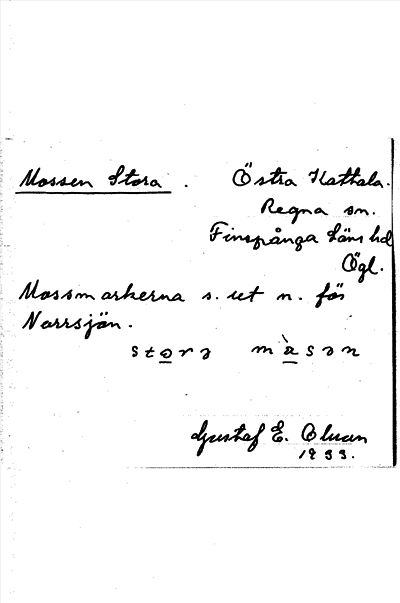 Mossen Stora. Östra Kattala.
Regna sn.
Finspånga läns hd
Ögl.
Mossmarkerna s. ut n. för
Norrsjön.
storə måsən
Gustaf E. Oluan
1933.